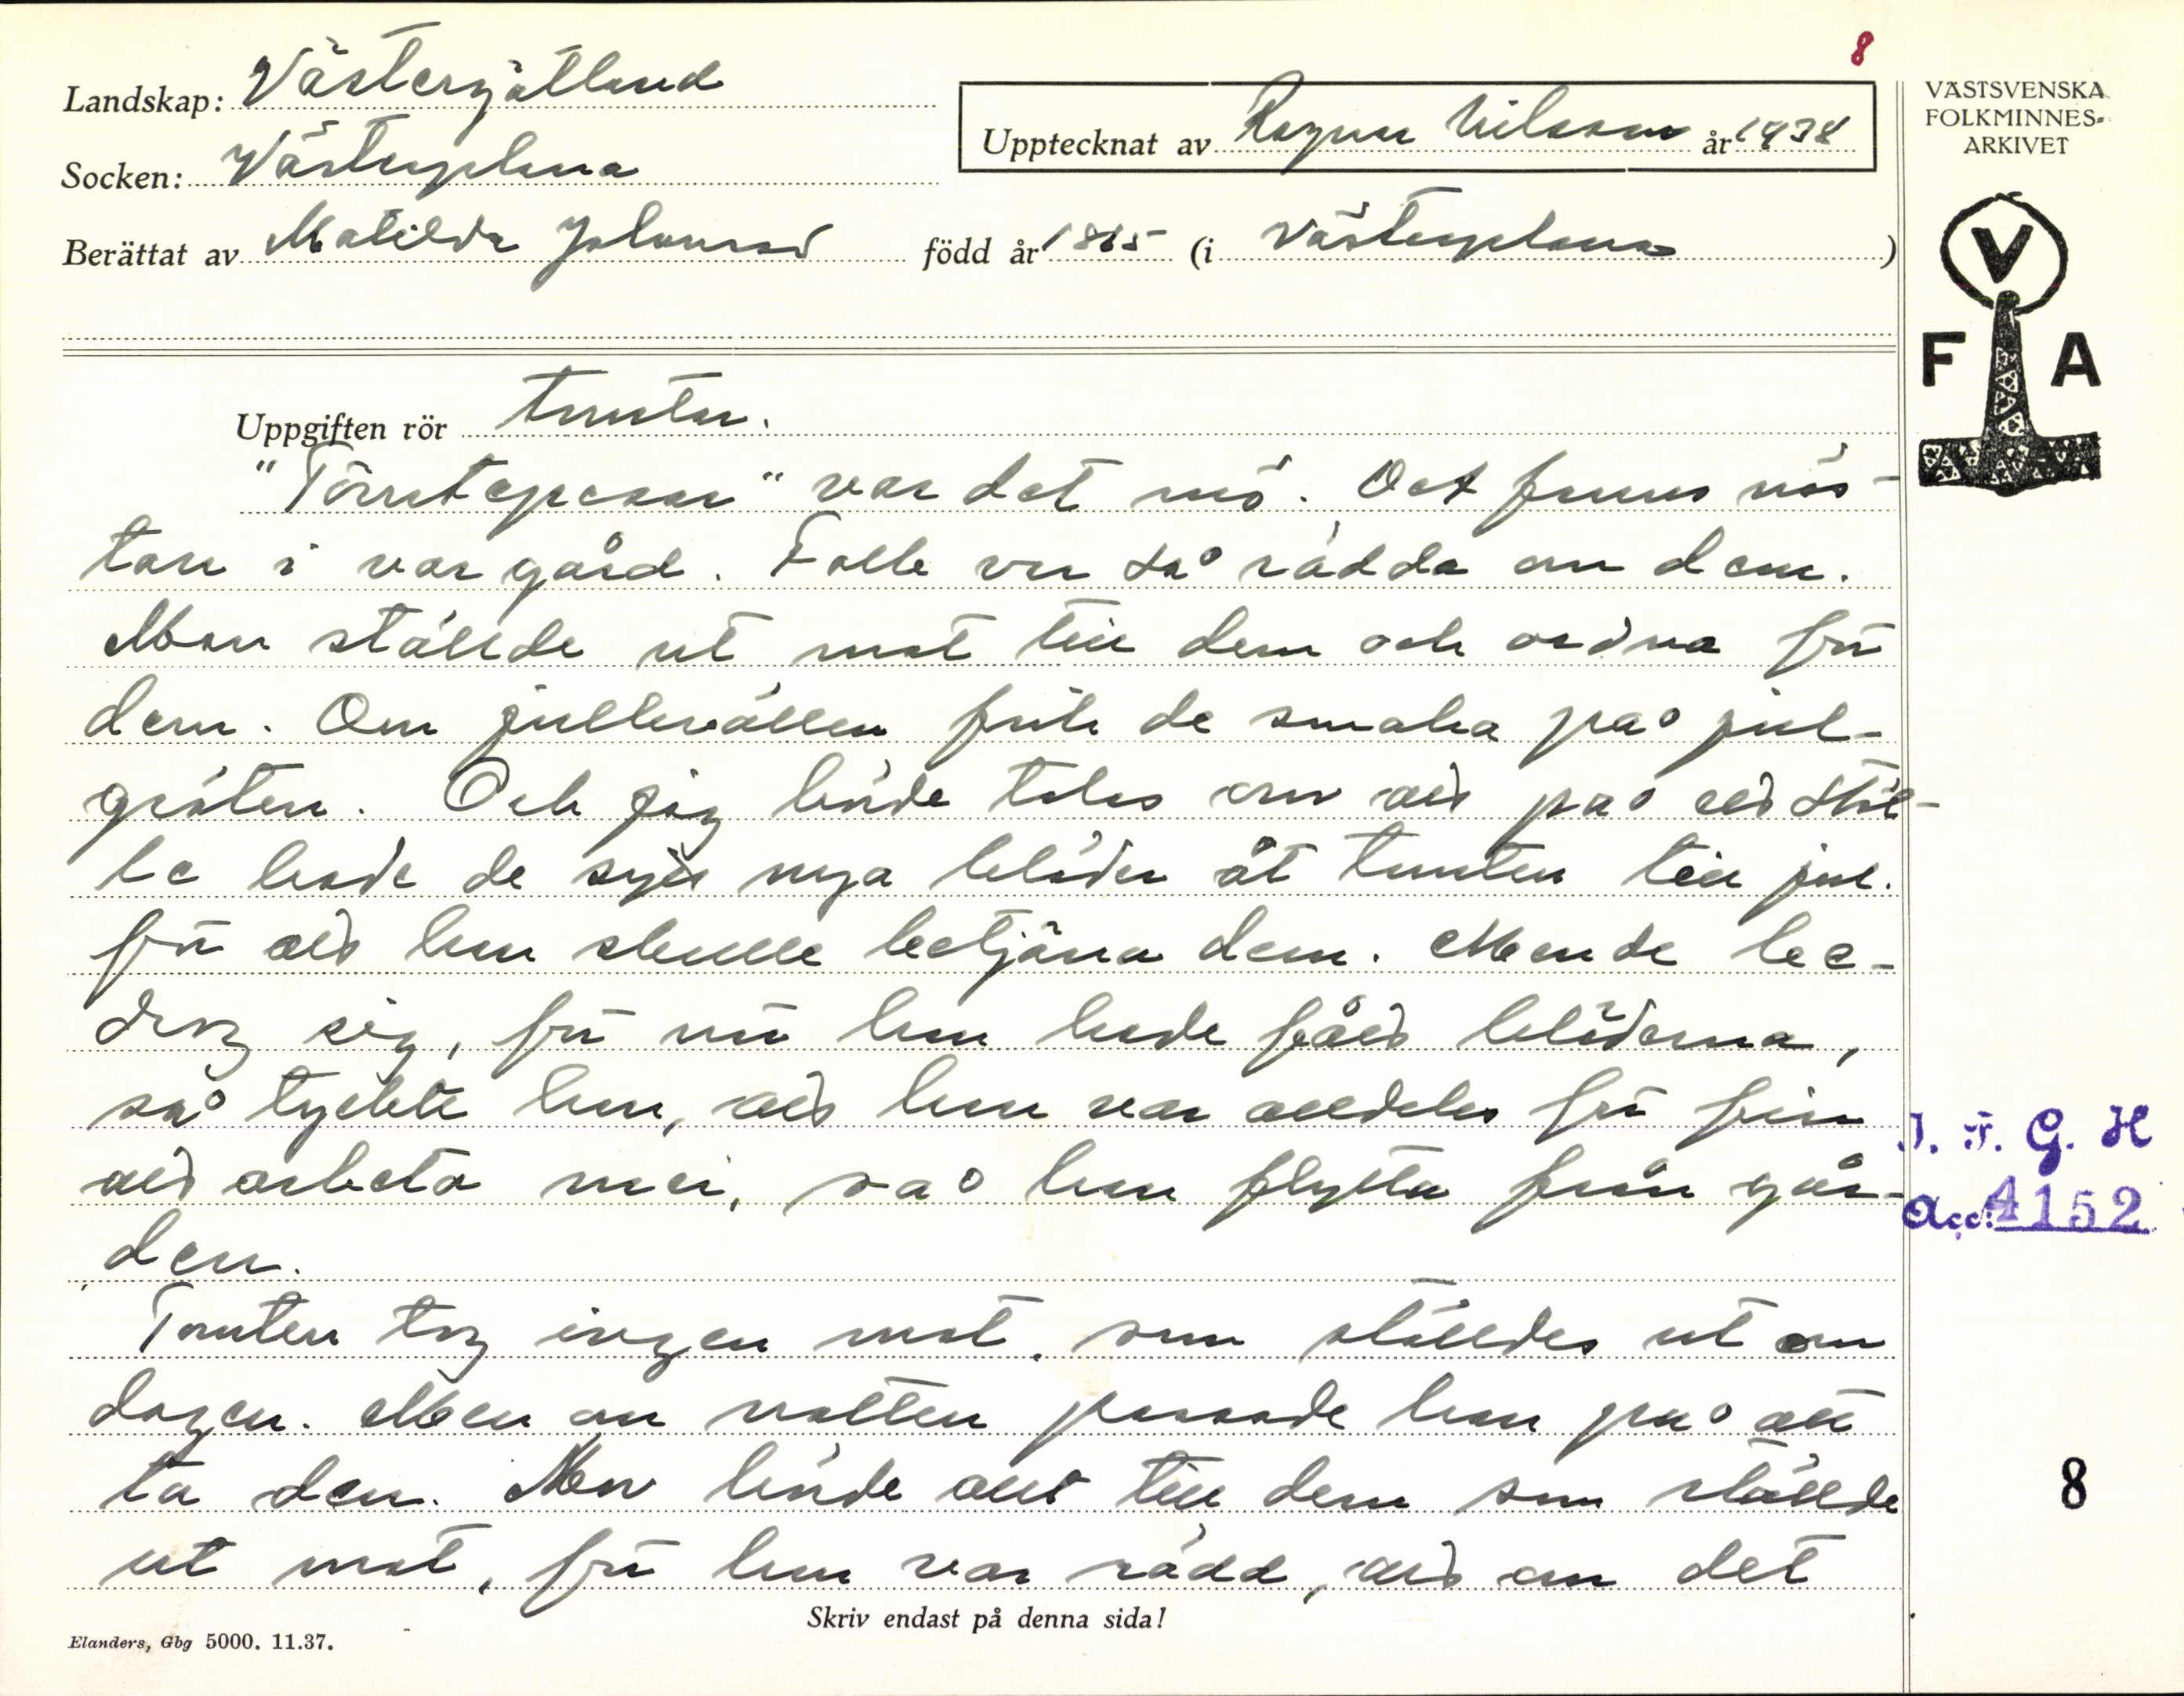 8
Landskap: Västergötland
Upptecknat av Ragnar Nilsson år 1938
VÄSTSVENSKA
FOLKMINNES-
ARKIVET
Socken: Västerplana
Berättat av Matilda Johansson född år 1865 (i Västerplana)
V
F A
Uppgiften rör tomten.
"Tomtegessar" var det nö. Det fanns näs-
tan i var gård. Folk var så rädda om dem.
Man ställde ut mat till dem och ordna för
dem. Om julkvällen fick de smaka på jul-
gröten. Och jag hörde talas om att på ett stäl-
le hade de sytt nya kläder åt tomten till jul.
för att han skulle betjäna dem. Men de be-
drog sig, för när han hade fått kläderna,
så tyckte han, att han var alldeles för fin
att arbeta mer, så han flytta från går-
den.
I. F. G. H
Acc: 4152
Tomten tog ingen mat, som ställdes ut om
dagen. Men om natten passade han på att
ta den. Men hörde allt till dem som ställde
8
ut mat, för han var rädd, att om det
Skriv endast på denna sida!
Elanders, Gbg 5000. 11.37.